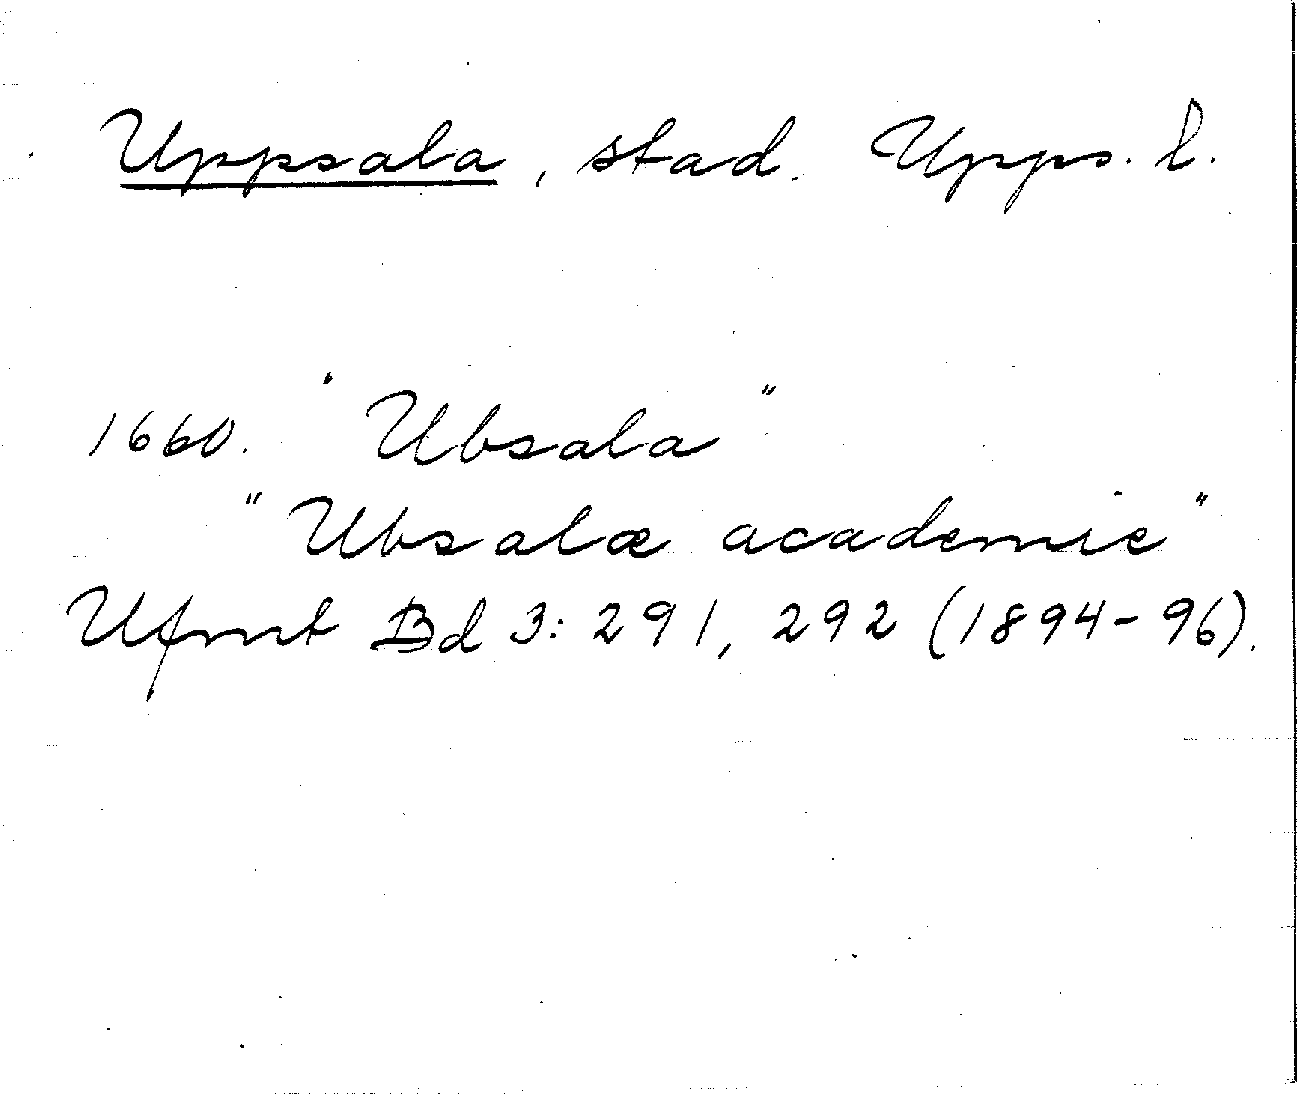 Uppsala, stad. Upps. l.
1660. "Ubsala"
"Ubsalæ academie"
Ufmt Bd 3: 291, 292 (1894-96).